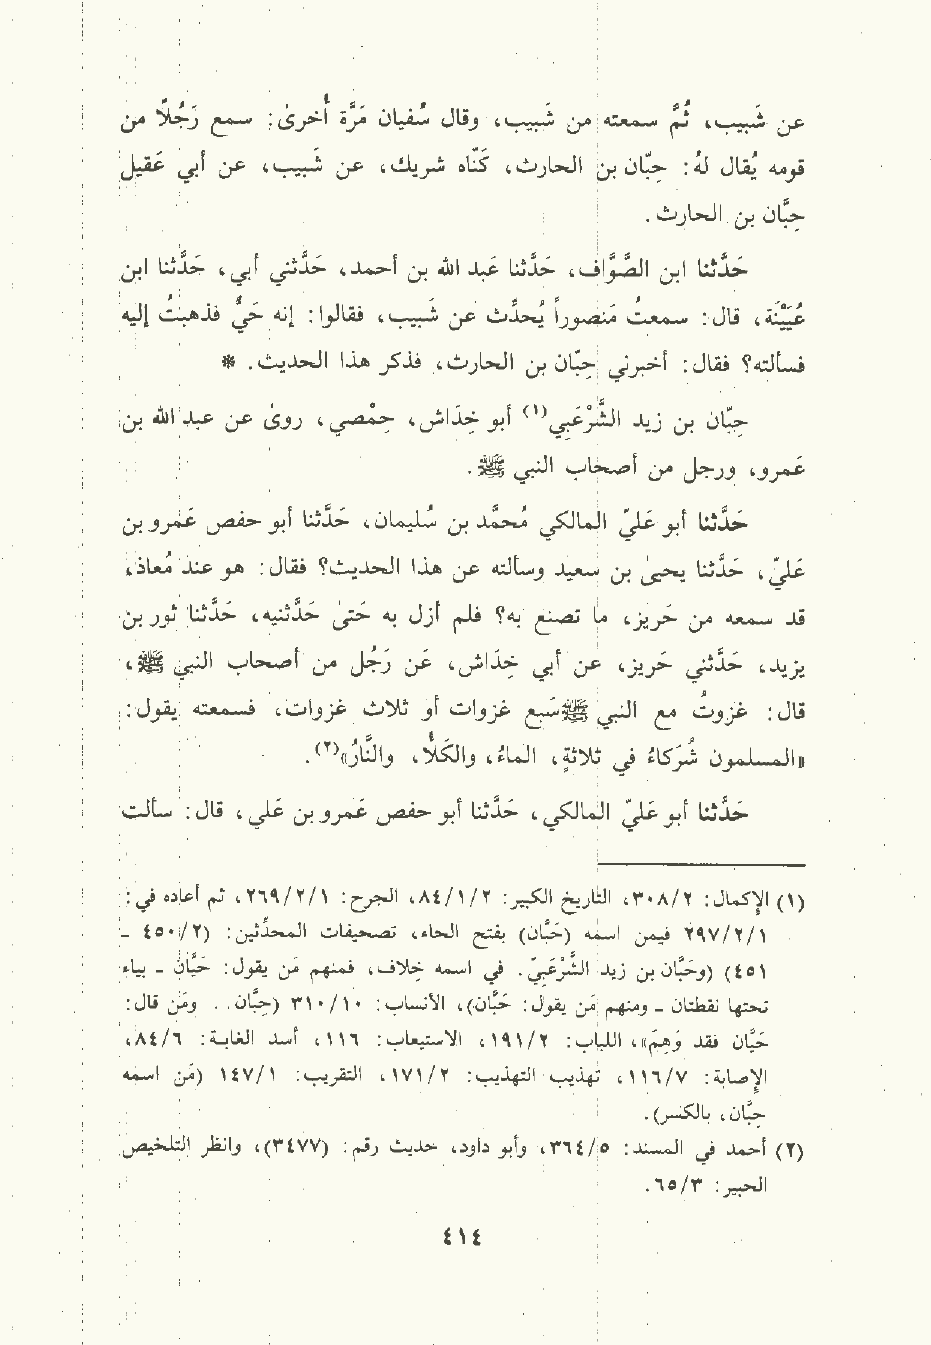 عن شَبيب، ثُمَّ سمعته من شَبيب، وقال سُفيان مَرَّة أُخرىٰ: سمع رَجُلاً من
قومه يُقال لهُ: حِبّان بن الحارث، كَنّاه شريك، عن شَبيب، عن أبي عَقيل
حِبَّان بن الحارث.
حَدَّثنا ابن الصَّوَّاف، حَدَّثنا عَبد الله بن أحمد، حَدَّثني أبي، حَدَّثنا ابن
عُيَيْنَة، قال: سمعتُ مَنصُوراً يُحدِّث عن شَبيب، فقالوا: إنه حَيٌّ فذهبتُ إليه
فسألته؟ فقال: أخبرني حِبّان بن الحارث، فذكر هذا الحديث. *
حِبّان بن زيد الشَّرْعَبِي(١) أبو خِدَاش، حِمْصي، روىٰ عن عبد الله بن
عَمرو، ورجل من أصحاب النبي ﷺ.
حَدَّثنا أبو عَليّ المالكي مُحمَّد بن سُليمان، حَدَّثنا أبو حفص عَمرو بن
عَليّ، حَدَّثنا يحيىٰ بن سعيد وسألته عن هذا الحديث؟ فقال: هو عند مُعاذ،
قد سمعه من حَريز، ما تصنع به؟ فلم أزل به حَتىٰ حَدَّثنيه، حَدَّثنا ثور بن
يزيد، حَدَّثني حَريز، عن أبي خِدَاش، عَن رَجُل من أصحاب النبي ﷺ،
قال: غزوتُ مع النبي ﷺ سَبع غزوات أو ثلاث غزوات، فسمعته يقول:
«المسلمون شُرَكاءُ في ثلاثةٍ، الماءُ، والكَلُأ، والنَّارُ»(٢).
حَدَّثنا أبو عَليّ المالكي، حَدَّثنا أبو حفص عَمرو بن عَلي، قال: سألت
(١) الإكمال: ٣٠٨/٢، التاريخ الكبير: ٨٤/١/٢، الجرح: ٢٦٩/٢/١، ثم أعاده في:
٢٩٧/٢/١ فيمن اسمه (حَبَّان) بفتح الحاء، تصحيفات المحدِّثين: (٤٥٠/٢ -
٤٥١) (وحَبَّان بن زيد الشَّرْعَبيّ. في اسمه خلاف، فمنهم مَن يقول: حَيَّان - بياء
تحتها نقطتان - ومنهم مَن يقول: حَبَّان)، الأنساب: ٣١٠/١٠ (حِبَّان.. ومَن قال:
حَيَّان فقد وَهِمَ»، اللباب: ١٩١/٢، الاستيعاب: ١١٦، أسد الغابة: ٨٤/٦،
الإصابة: ١١٦/٧، تهذيب التهذيب: ١٧١/٢، التقريب: ١٤٧/١ (مَن اسمه
حِبَّان، بالكسر).
(٢) أحمد في المسند: ٣٦٤/٥، وأبو داود، حديث رقم: (٣٤٧٧)، وانظر التلخيص
الحبير: ٦٥/٣.
٤١٤